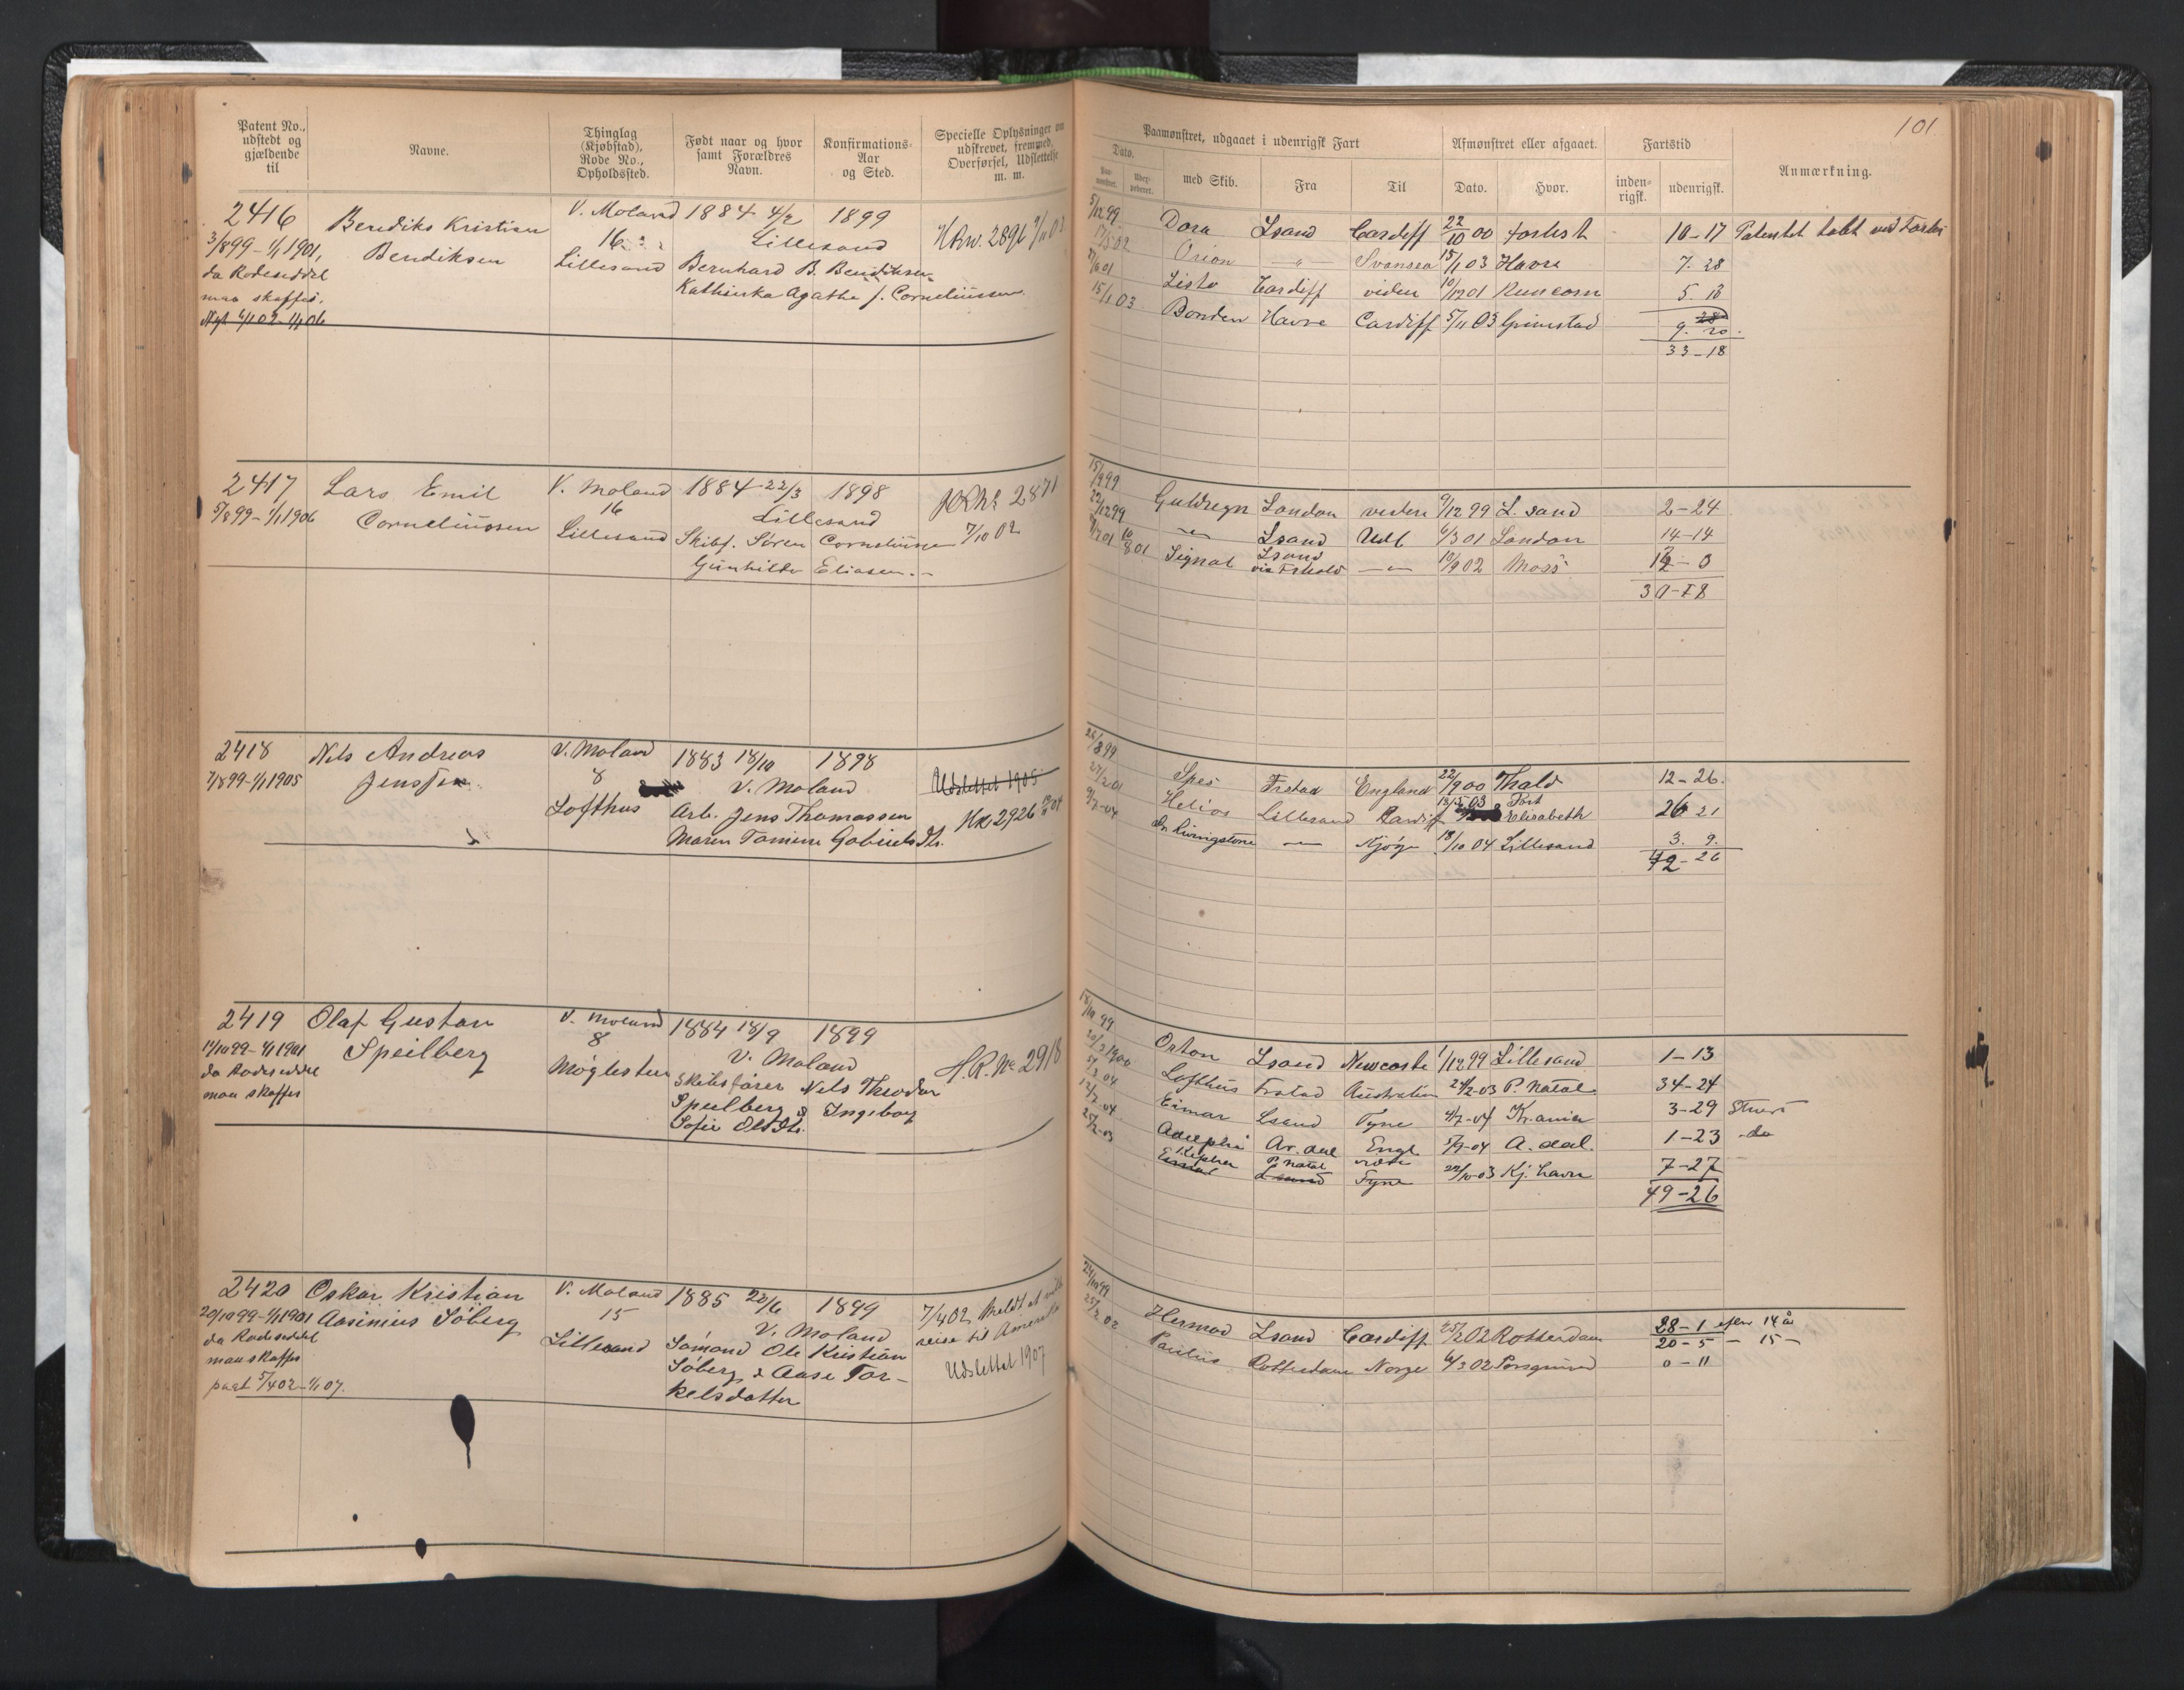 Patent No., udstedt og gjældende til
Navne.
Thinglag (Kjøbstad), Rode No., Opholdssted.
Født naar og hvor samt Forældres Navn.
Konfirmations-Aar og Sted.
Specielle Oplysninger om udskrevet, fremmed, Overførsel, Udslettelse m. m.
Paamønstret, udgaaet i udenrigsk Fart
Dato.
med Skib.
Fra
Til
Afmønstret eller afgaaet.
Dato.
Hvor.
Fartstid
inden-rigsk.
udenrigsk.
Anmærkning.
101.
2416
3/8 99 - 1/1 1901,
da Rodeseddel
maa skaffes.
Nyt 4/1 02 - 1/1 06
Bendiks Kristian
Bendiksen
V. Moland
16
Lillesand
1884 4/2
1899
Lillesand
Bernhard B. Bendiksen
Kathinka Agathe f. Corneliussen
5/12 99 Dora Lsand Cardiff 22/10 00 forlist 10-17 Patentet tabt ved Forlis
Orion - " - Svansea 15/1 03 Havre 7. 28
Lista Cardiff viden 10/12 01 Runcorn 5. 13
15/1 03 Bonden Havre Cardiff 5/11 03 Grimstad 9. 20
33-18
2417
5/8 99 - 1/1 1906
Lars Emil
Corneliussen
V. Moland
16
Lillesand
1884 22/3
1898
Lillesand
Skibsf. Søren Corneliussen
Gunhilde Eliasen
2871
7/10 02
15/9 99 Guldregn London videre 9/12 99 L. sand 2-24
22/12 99 - " - Lsand Udl 6/3 01 London 14-14
Signal Lsand via Frhald - " - 10/9 02 Moss 12-0
2418
7/8 99 - 1/1 1905
Nils Andreas
Jenssen
V. Moland
8
Lofthus
1883 18/10
1898
V. Moland
Arb. Jens Thomassen
Maren Tomine Gabrielsdtr.
Udslettet 1905
2926
26/8 99 Spes Frstad England 22/9 00 Thald 12-26.
27/2 01 Helios Lillesand Cardiff 13/5 03 Port Elisabeth 26 21
Dr Livingstone - " - Kjöge 18/10 04 Lillesand 3. 9.
42-26
2419
14/10 99 - 1/1 1901
da Rodeseddel
maa skaffes
Olaf Gustav
Speilberg
V. Moland
8
Møglestu
1884 18/9
1899
V. Moland
Skibsfører Nils Theodor
Speilberg & Ingeborg
Sofie Olsdtr.
H.R. No 2918
18/10 99 Orton Lsand Newcastle 1/12 99 Lillesand 1-13
20/3 1900 Lofthus Frstad Australien 24/2-03 P. Natal 34-24
Eimar Lsand Tyne 4/7-04 Kr.ania 3-29 Stuert
Adelphi Ar.dal Engl. 5/9-04 A.dal. 1-23 do
Kepler P. Natal 22/10-03 Kj. havn 7-27
Eimar Lsand Tyne
49-26
2420
20/10 99 - 1/1 1901
da Rodeseddel
maa skaffes
paat 5/4 02 - 1/1 07.
Oskar Kristian
Aasinius Söberg
V. Moland
15
Lillesand
1885 20/6
1899
V. Moland
Sømand Ole Kristian
Söberg & Aase Tor-
kelsdatter
7/4 02 Meldt at ville
reise til Amerika
Udslettet 1907
24/10 99 Hermod Lsand Cardiff 25/2 02 Rotterdam 28-1 efter 14 år
20-5 - 15 -
25/2 02 Paulus Rotterdam Norge 6/3 02 Porsgrund 0-11